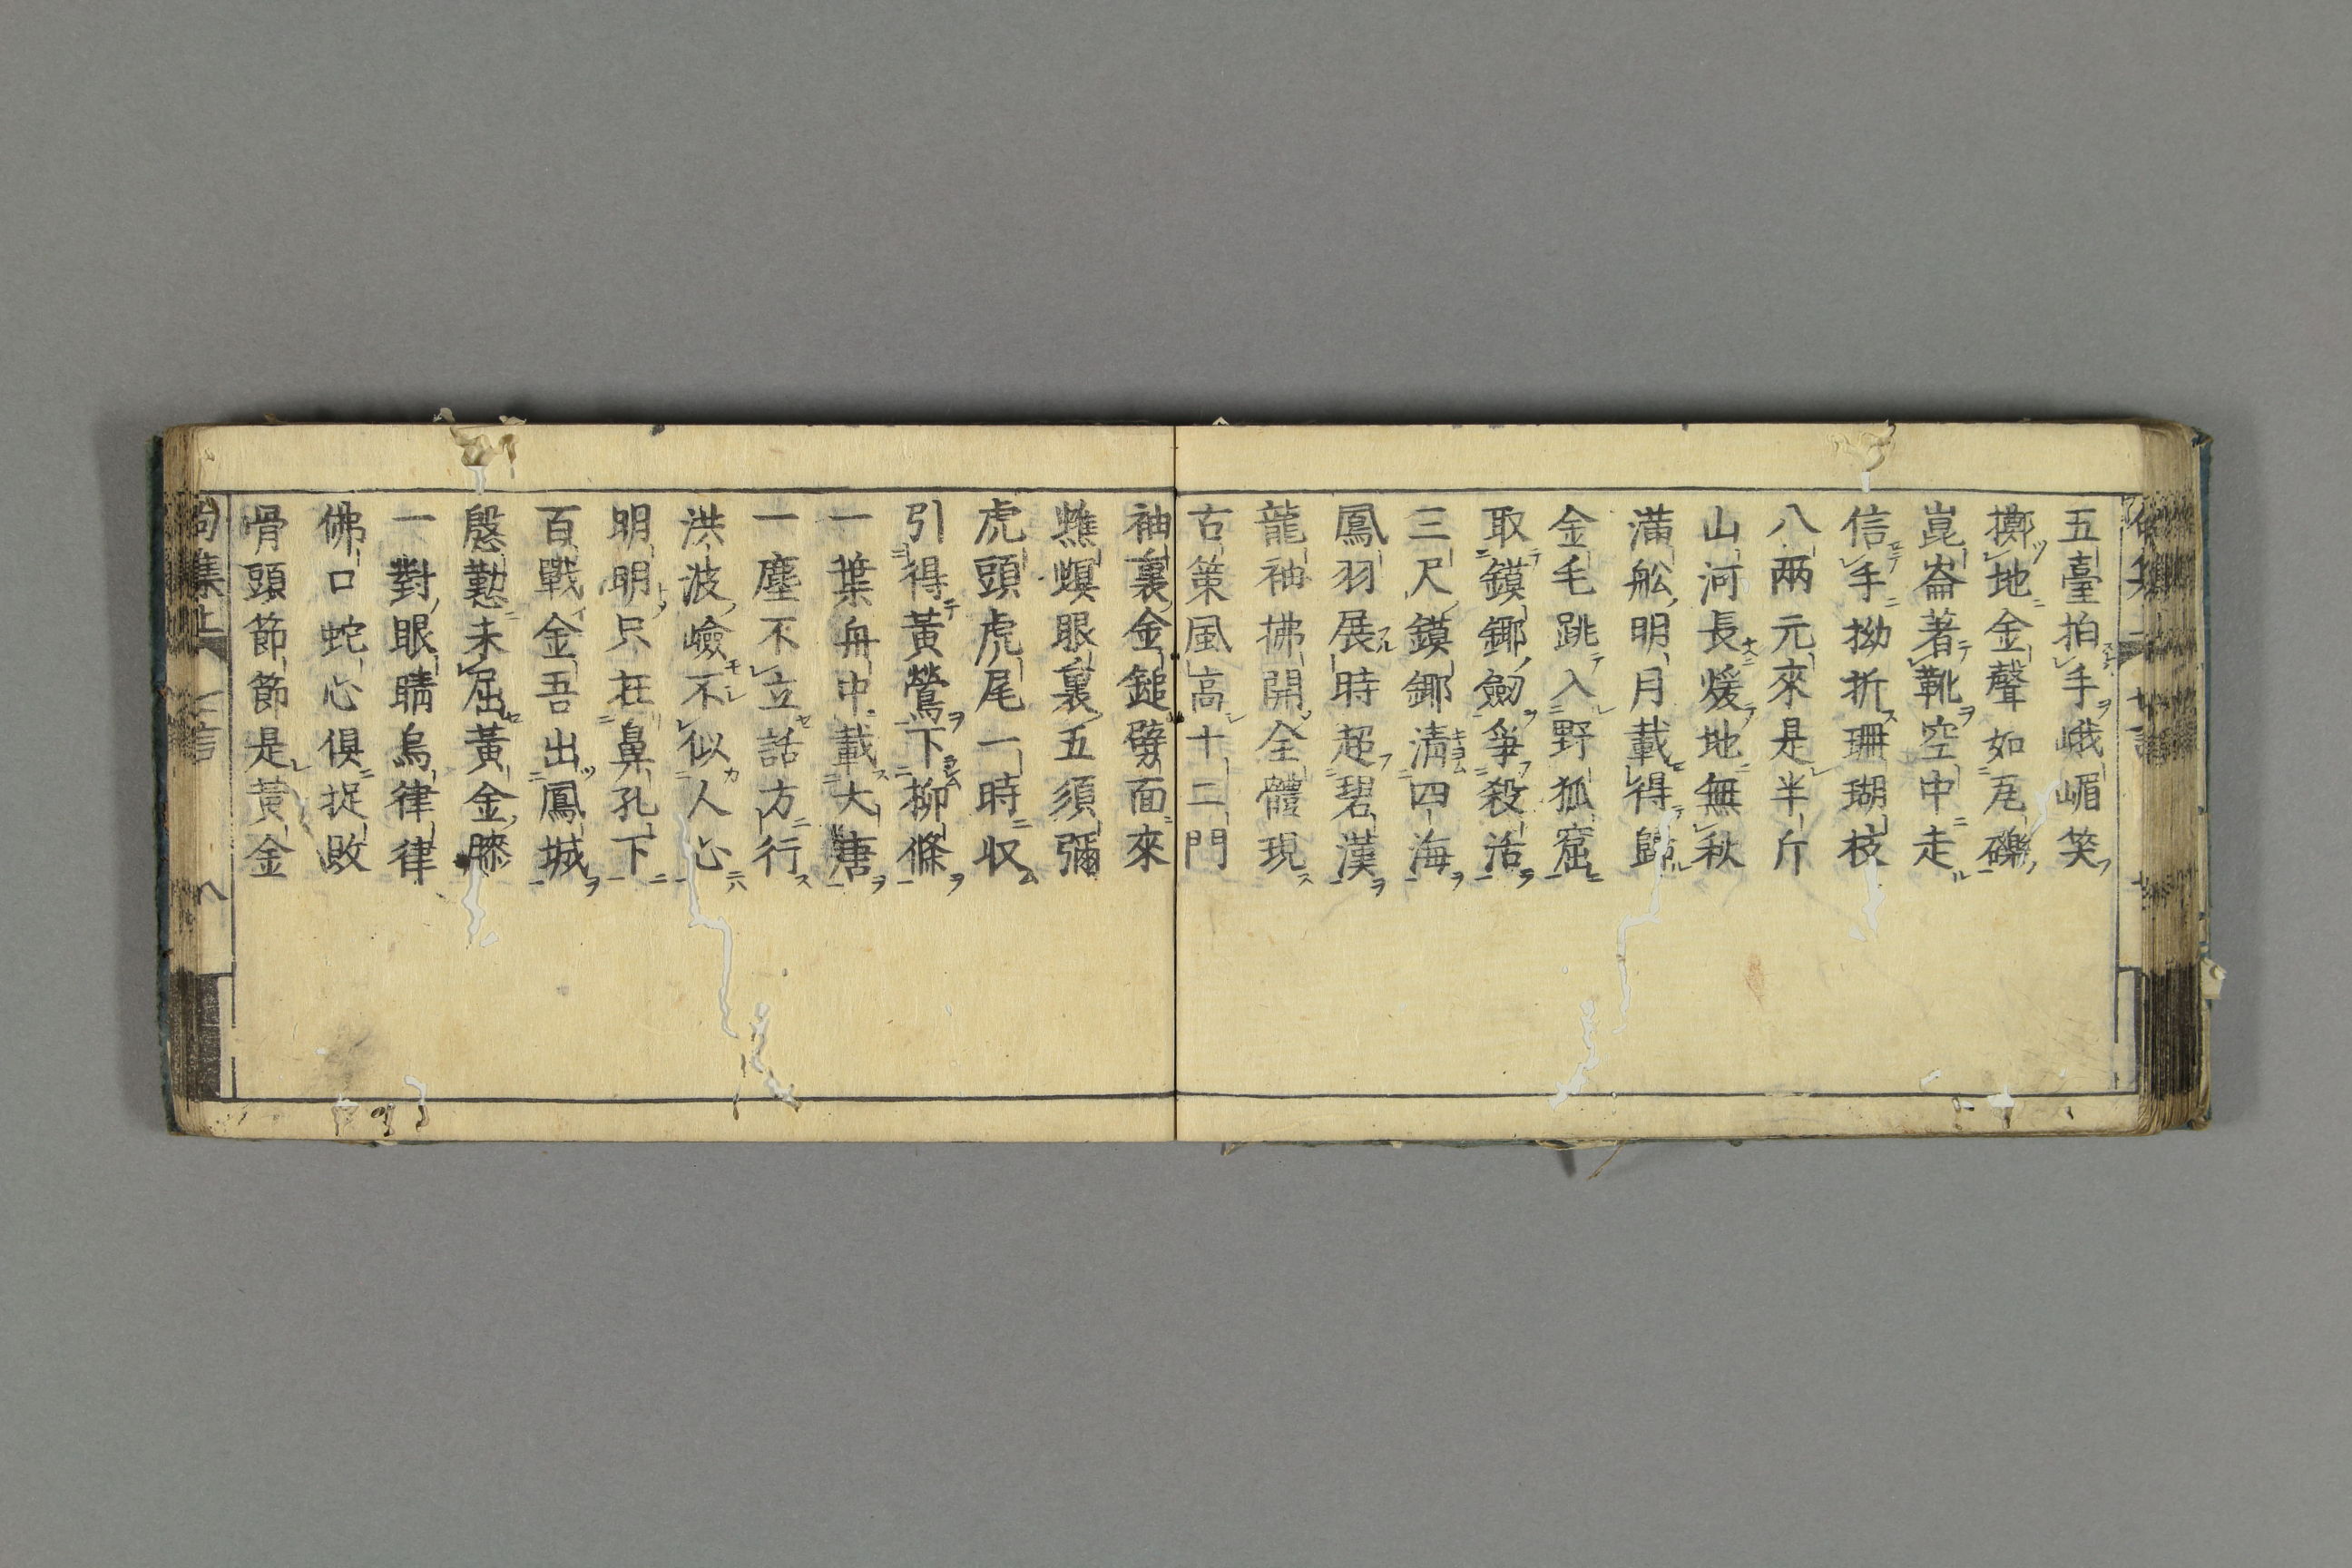 五臺拍手峨嵋笑
擲地金聲如瓦礫
崑崙著靴空中走
信手拗折珊瑚枝
八兩元來是半斤
山河長煖地無秋
滿舩明月載得歸
金毛跳入野狐窟
取鏌鎁劔爭殺活
三尺鏌鎁清四海
鳳羽展時超碧漢
龍袖拂開全體現
古策風高十二門
袖裏金鎚劈面來
蟭螟眼裏五須彌
虎頭虎尾一時収
引得黃鶯下柳條
一葉舟中載大唐
一塵不立話方行
洪波嶮不似人心
明明只在鼻孔下
百戰金吾出鳳城
慇懃未屈黃金膝
一對眼睛烏律律
佛口蛇心俱捉敗
骨頭節節是黃金
句集上 七言 八